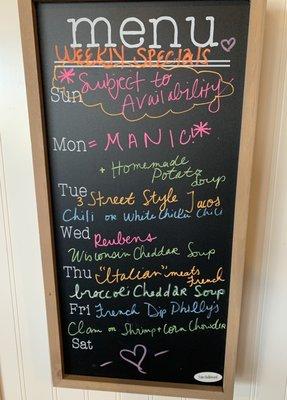 menu
WEEKLY SPECIALS
* Subject to
Sun
Availability
Mon = MANIC! *
+ Homemade
Potato
Soup
Tue 3 Street Style Tacos
Chili or White Chicken Chili
Wed Reubens
Wisconsin Cheddar Soup
Thu "Italian" meets
French
broccoli Cheddar Soup
Fri French Dip Philly's
Clam or Shrimp + Corn Chowder
Sat